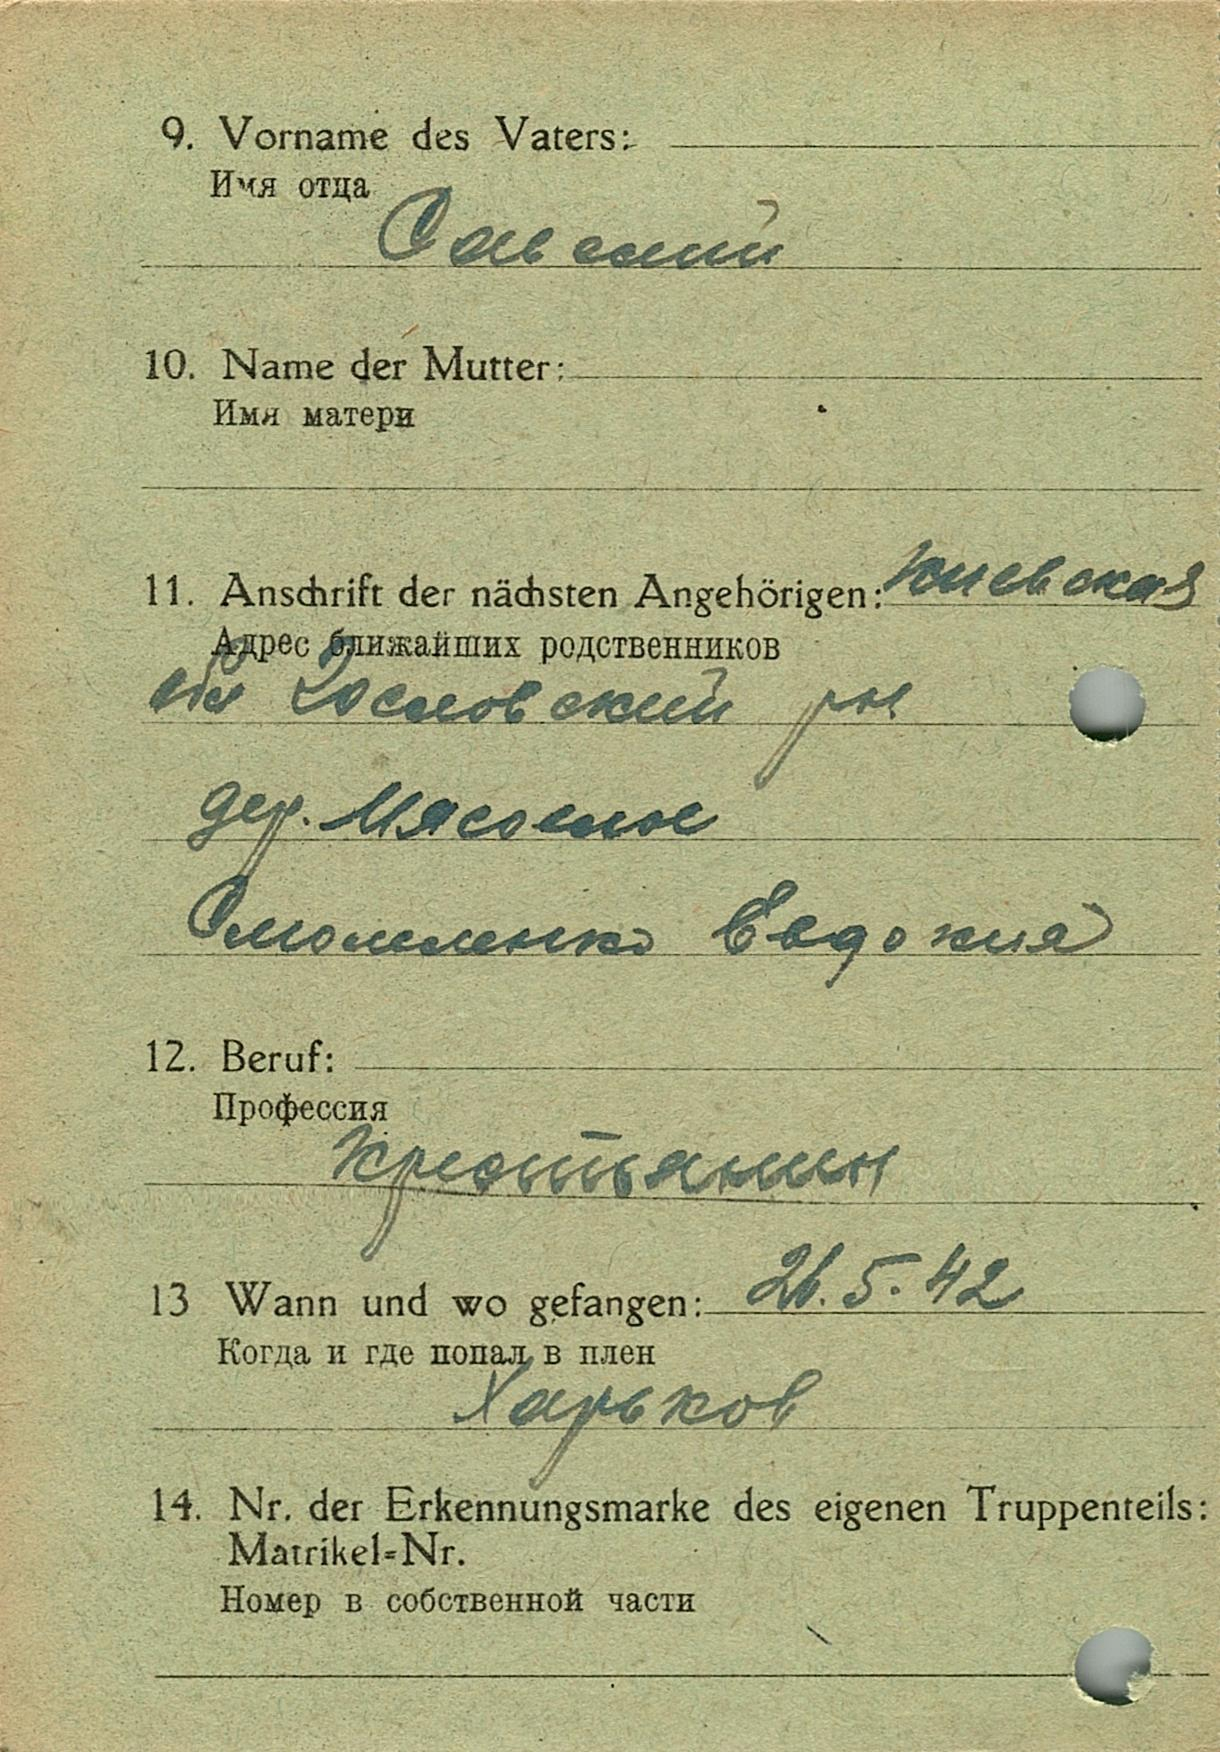 9. Vorname des Vaters:
Имя отца
10. Name der Mutter:
Имя матери
11. Anschrift der nächsten Angehörigen: Киевская
Адрес ближайших родственников
обл ский рн
дер.
Евдокия
12. Beruf:
Профессия
крестьянин
13 Wann und wo gefangen: 26.5.42
Когда и где попал в плен
Харьков
14. Nr. der Erkennungsmarke des eigenen Truppenteils:
Matrikel-Nr.
Номер в собственной части